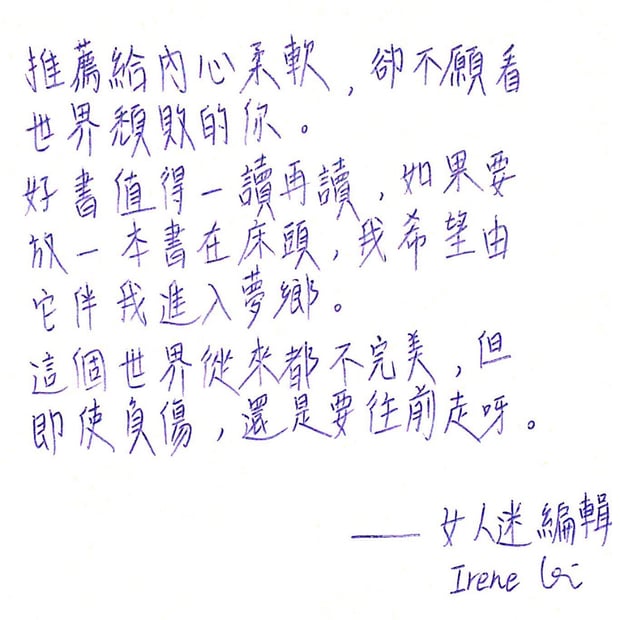 推薦給內心柔軟，卻不願看
世界頹敗的你。
好書值得一讀再讀，如果要
放一本書在床頭，我希望由
它伴我進入夢鄉。
這個世界從來都不完美，但
即使負傷，還是要往前走呀。
—— 女人迷編輯
Irene